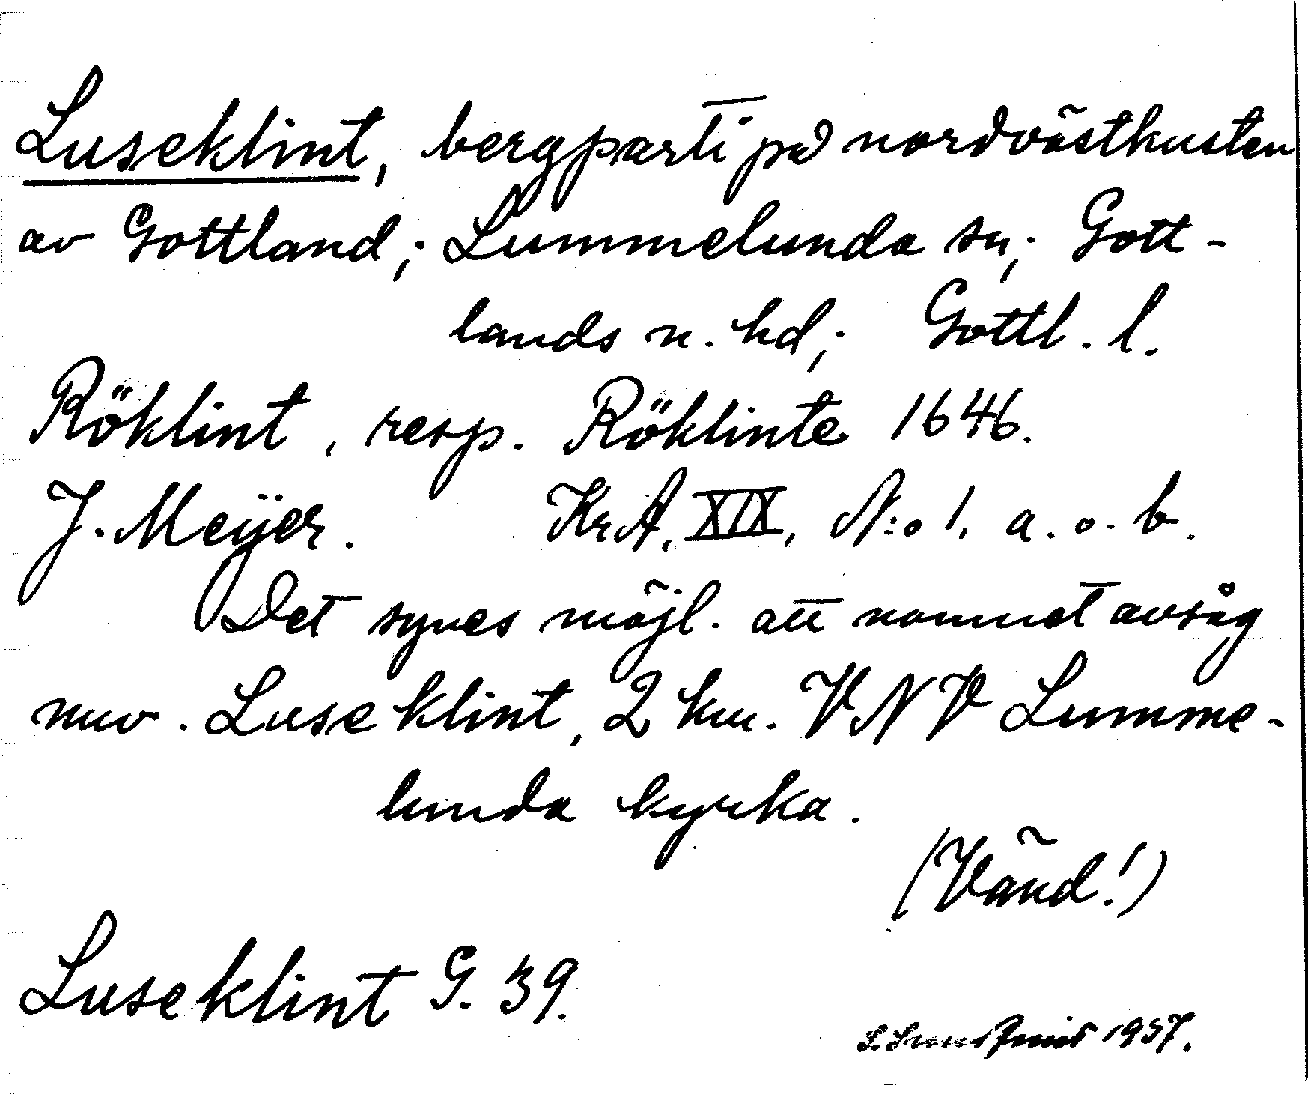 Luseklint, bergparti på nordvästkusten
av Gottland; Lummelunda sn; Gott-
lands n. hd; Gottl. l.
Röklint, resp. Röklinte 1646.
J. Meÿer. KrA, XIX, N:o 1. a. o. b.
Det synes möjl. att namnet avsåg
nuv. Luseklint, 2 km. VNV Lumme-
lunda kyrka.
(Vänd!)
Luseklint G. 39.
1937.